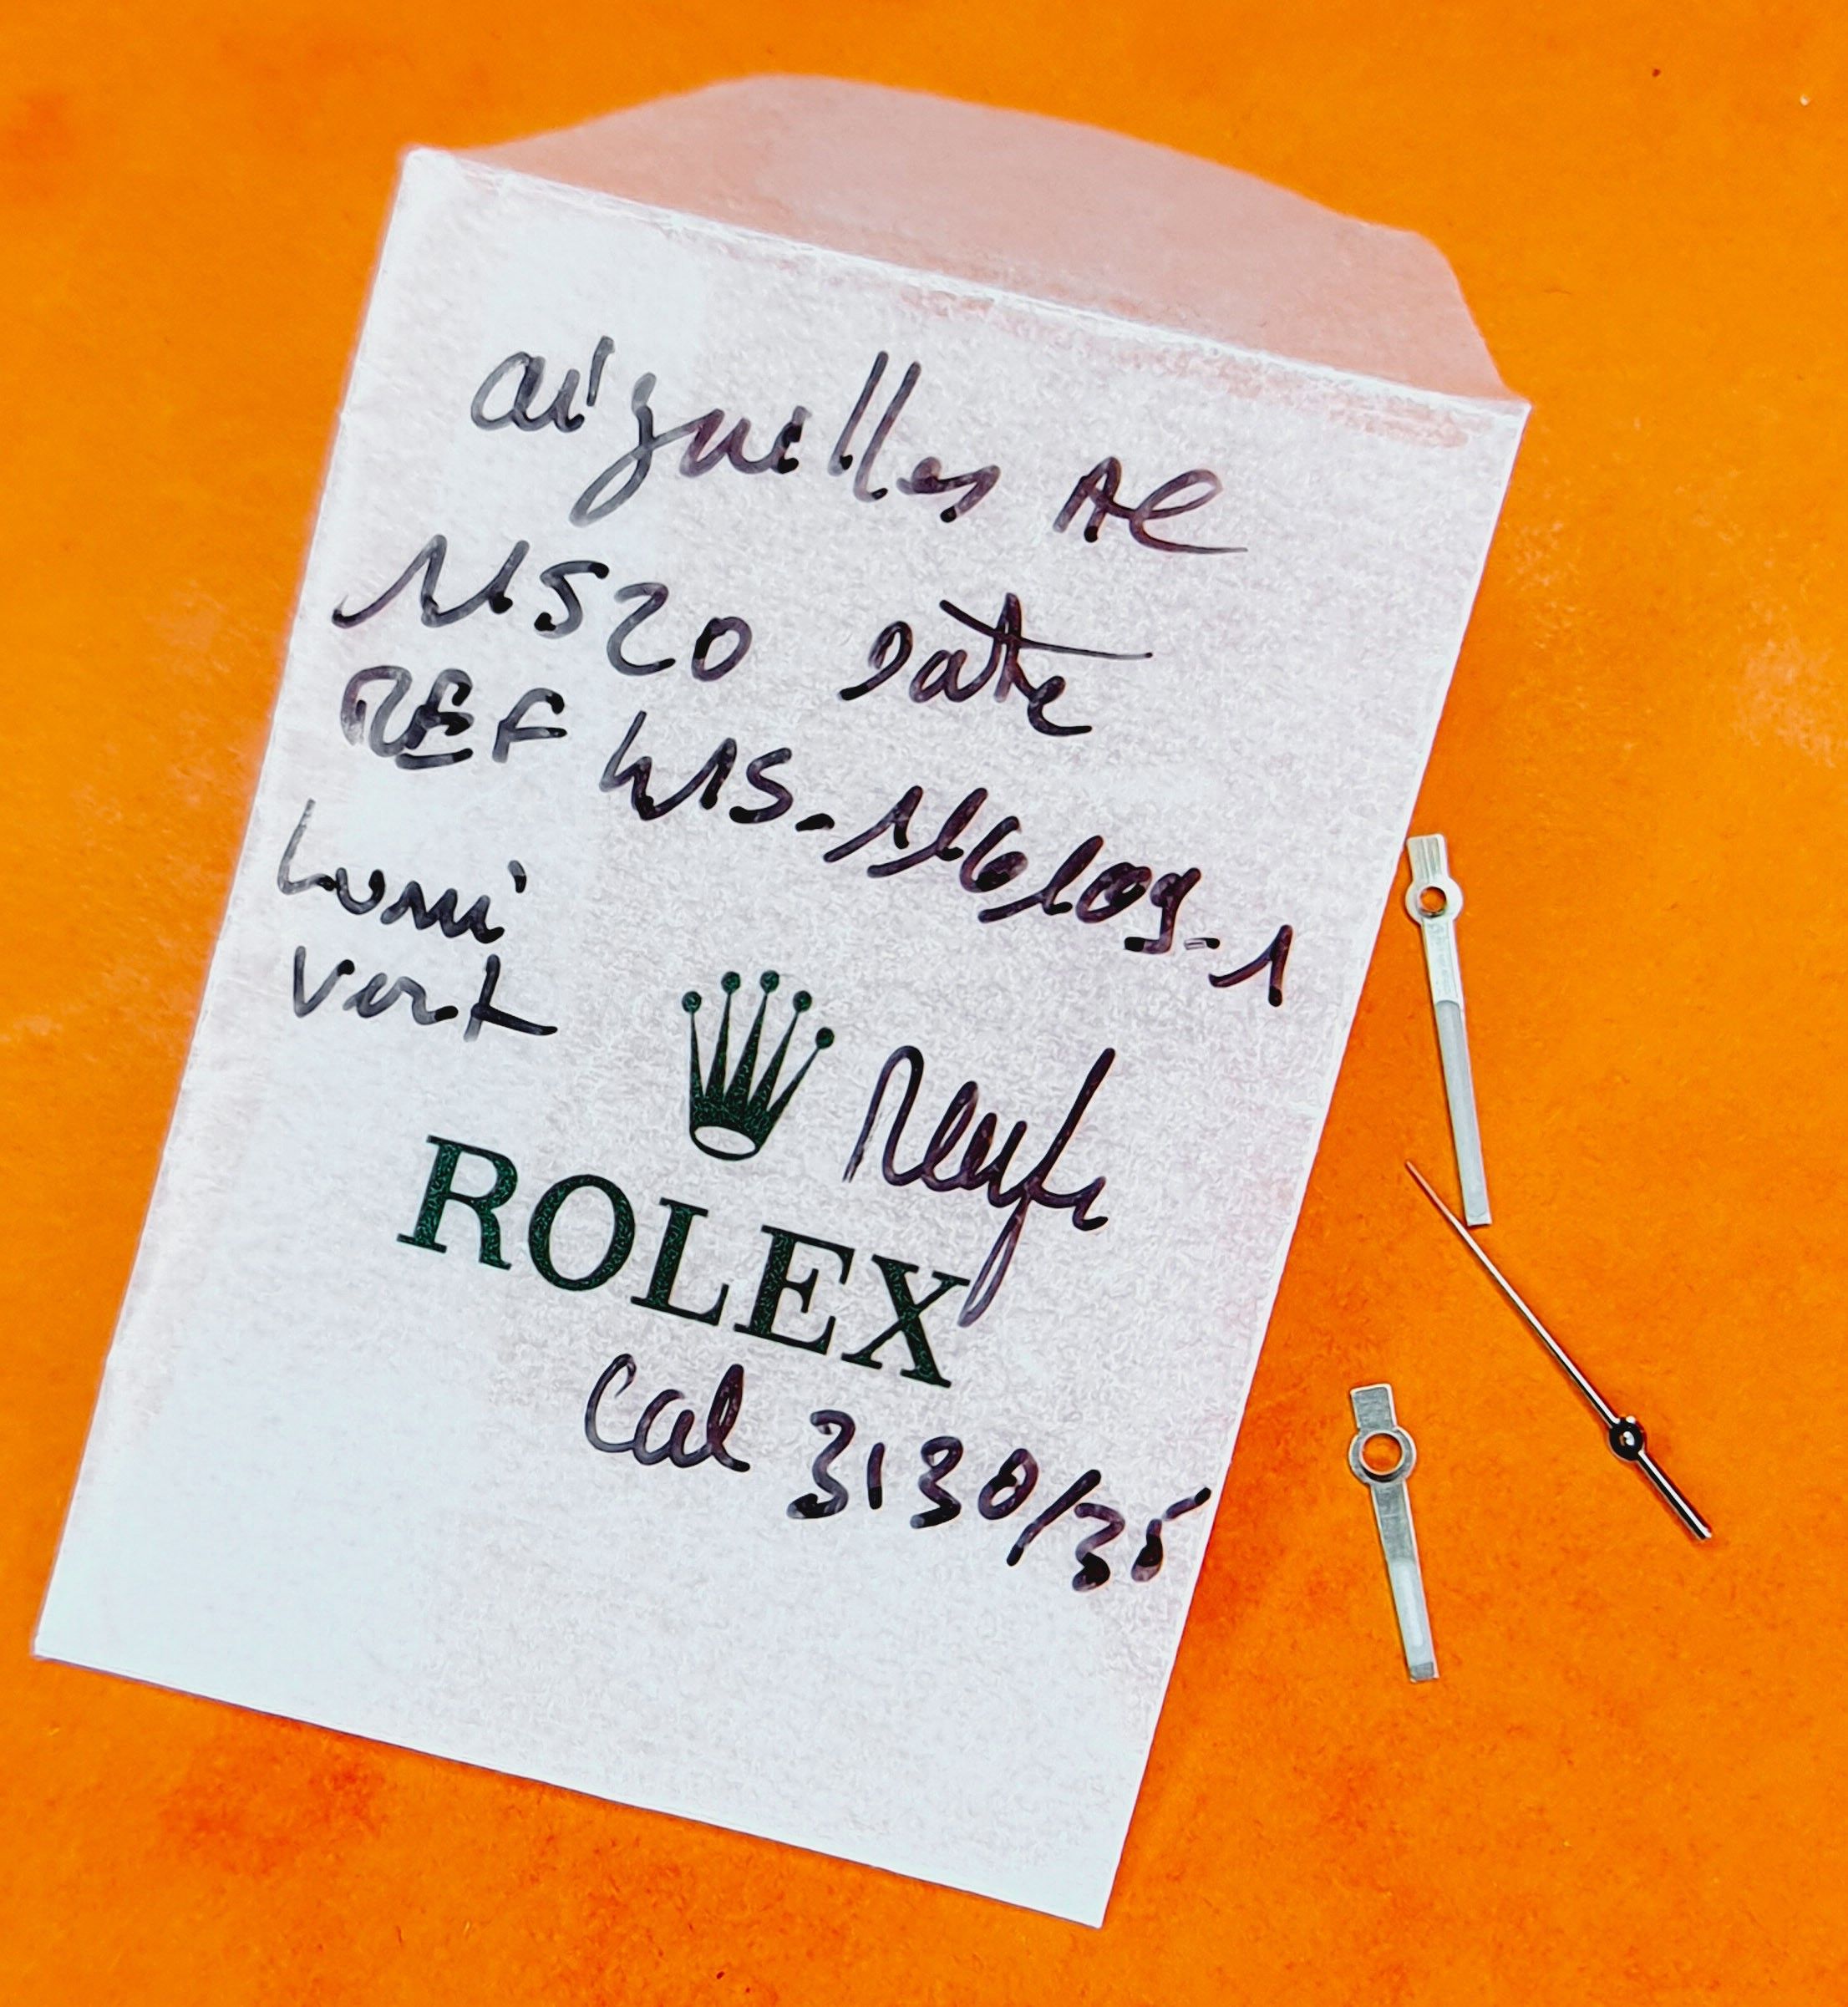 aiguilles AC
11520 Date
REF h15-116109-1
Lumi
Vert
ROLEX
Cal 3130/35